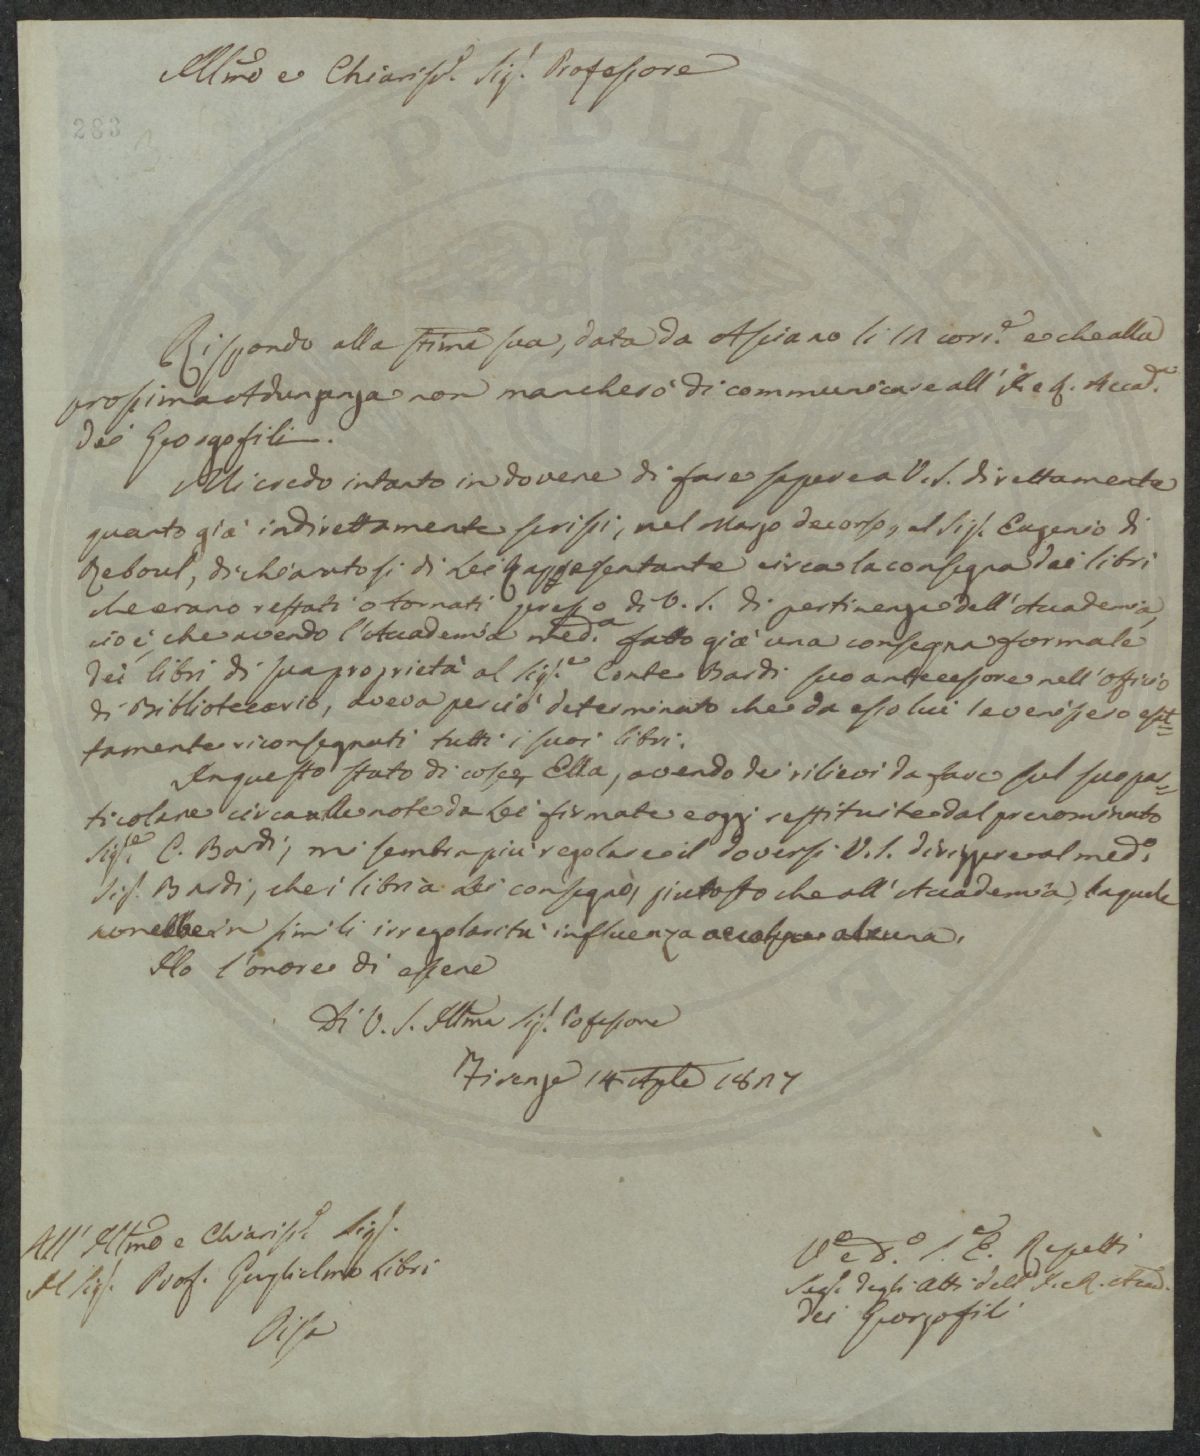 Ill.mo e Chiariss.o Sig.r Professore
283
Rispondo alla stima sua, data da Asciano li 12 corr.e e che alla
prossima Adunanza non mancherò di communicare all' I. e R. Accad.a
dei Georgofili.
Mi credo intanto in dovere di fare sapere a V. S. direttamente
quanto già indirettamente scrissi, nel Marzo decorso, al Sig.r Eugenio di
Reboul, dichiaratosi di Lei Rappresentante circa la consegna dei libri
che erano restati o tornati presso di V. S. di pertinenza dell' Accademia,
cioè, che avendo l'Accademia med.a fatto già una consegna formale
dei libri di sua proprietà al Sig.re Conte Bardi suo antecessore nell' Offizio
di Bibliotecario, aveva perciò determinato che da esso lui le venissero
tamente riconsegnati tutti i suoi libri.
In questo stato di cose, Ella, avendo dei rilievi da fare sul suo par=
ticolare circa alle note da Lei firmate e oggi restituite dal prenominato
Sig.re C. Bardi, mi sembra più regolare il doversi V. S. dirigere al med.o
Sig.r Bardi, che i libri a Lei consegnò, piuttosto che all' Accademia, la quale
non ebbe in simili irregolarità influenza alcuna.
Ho l'onore di essere
Di V. S. Ill.ma Sig.r Pofessore
Firenze 14 Aple 1827
All' Ill.mo e Chiariss.o Sig.r
Il Sig.r Prof. Guglielmo Libri
Pisa
V.o e D.o S.e E. Repetti
Seg.o degli Atti dell' I. e R. Accad.
dei Georgofili